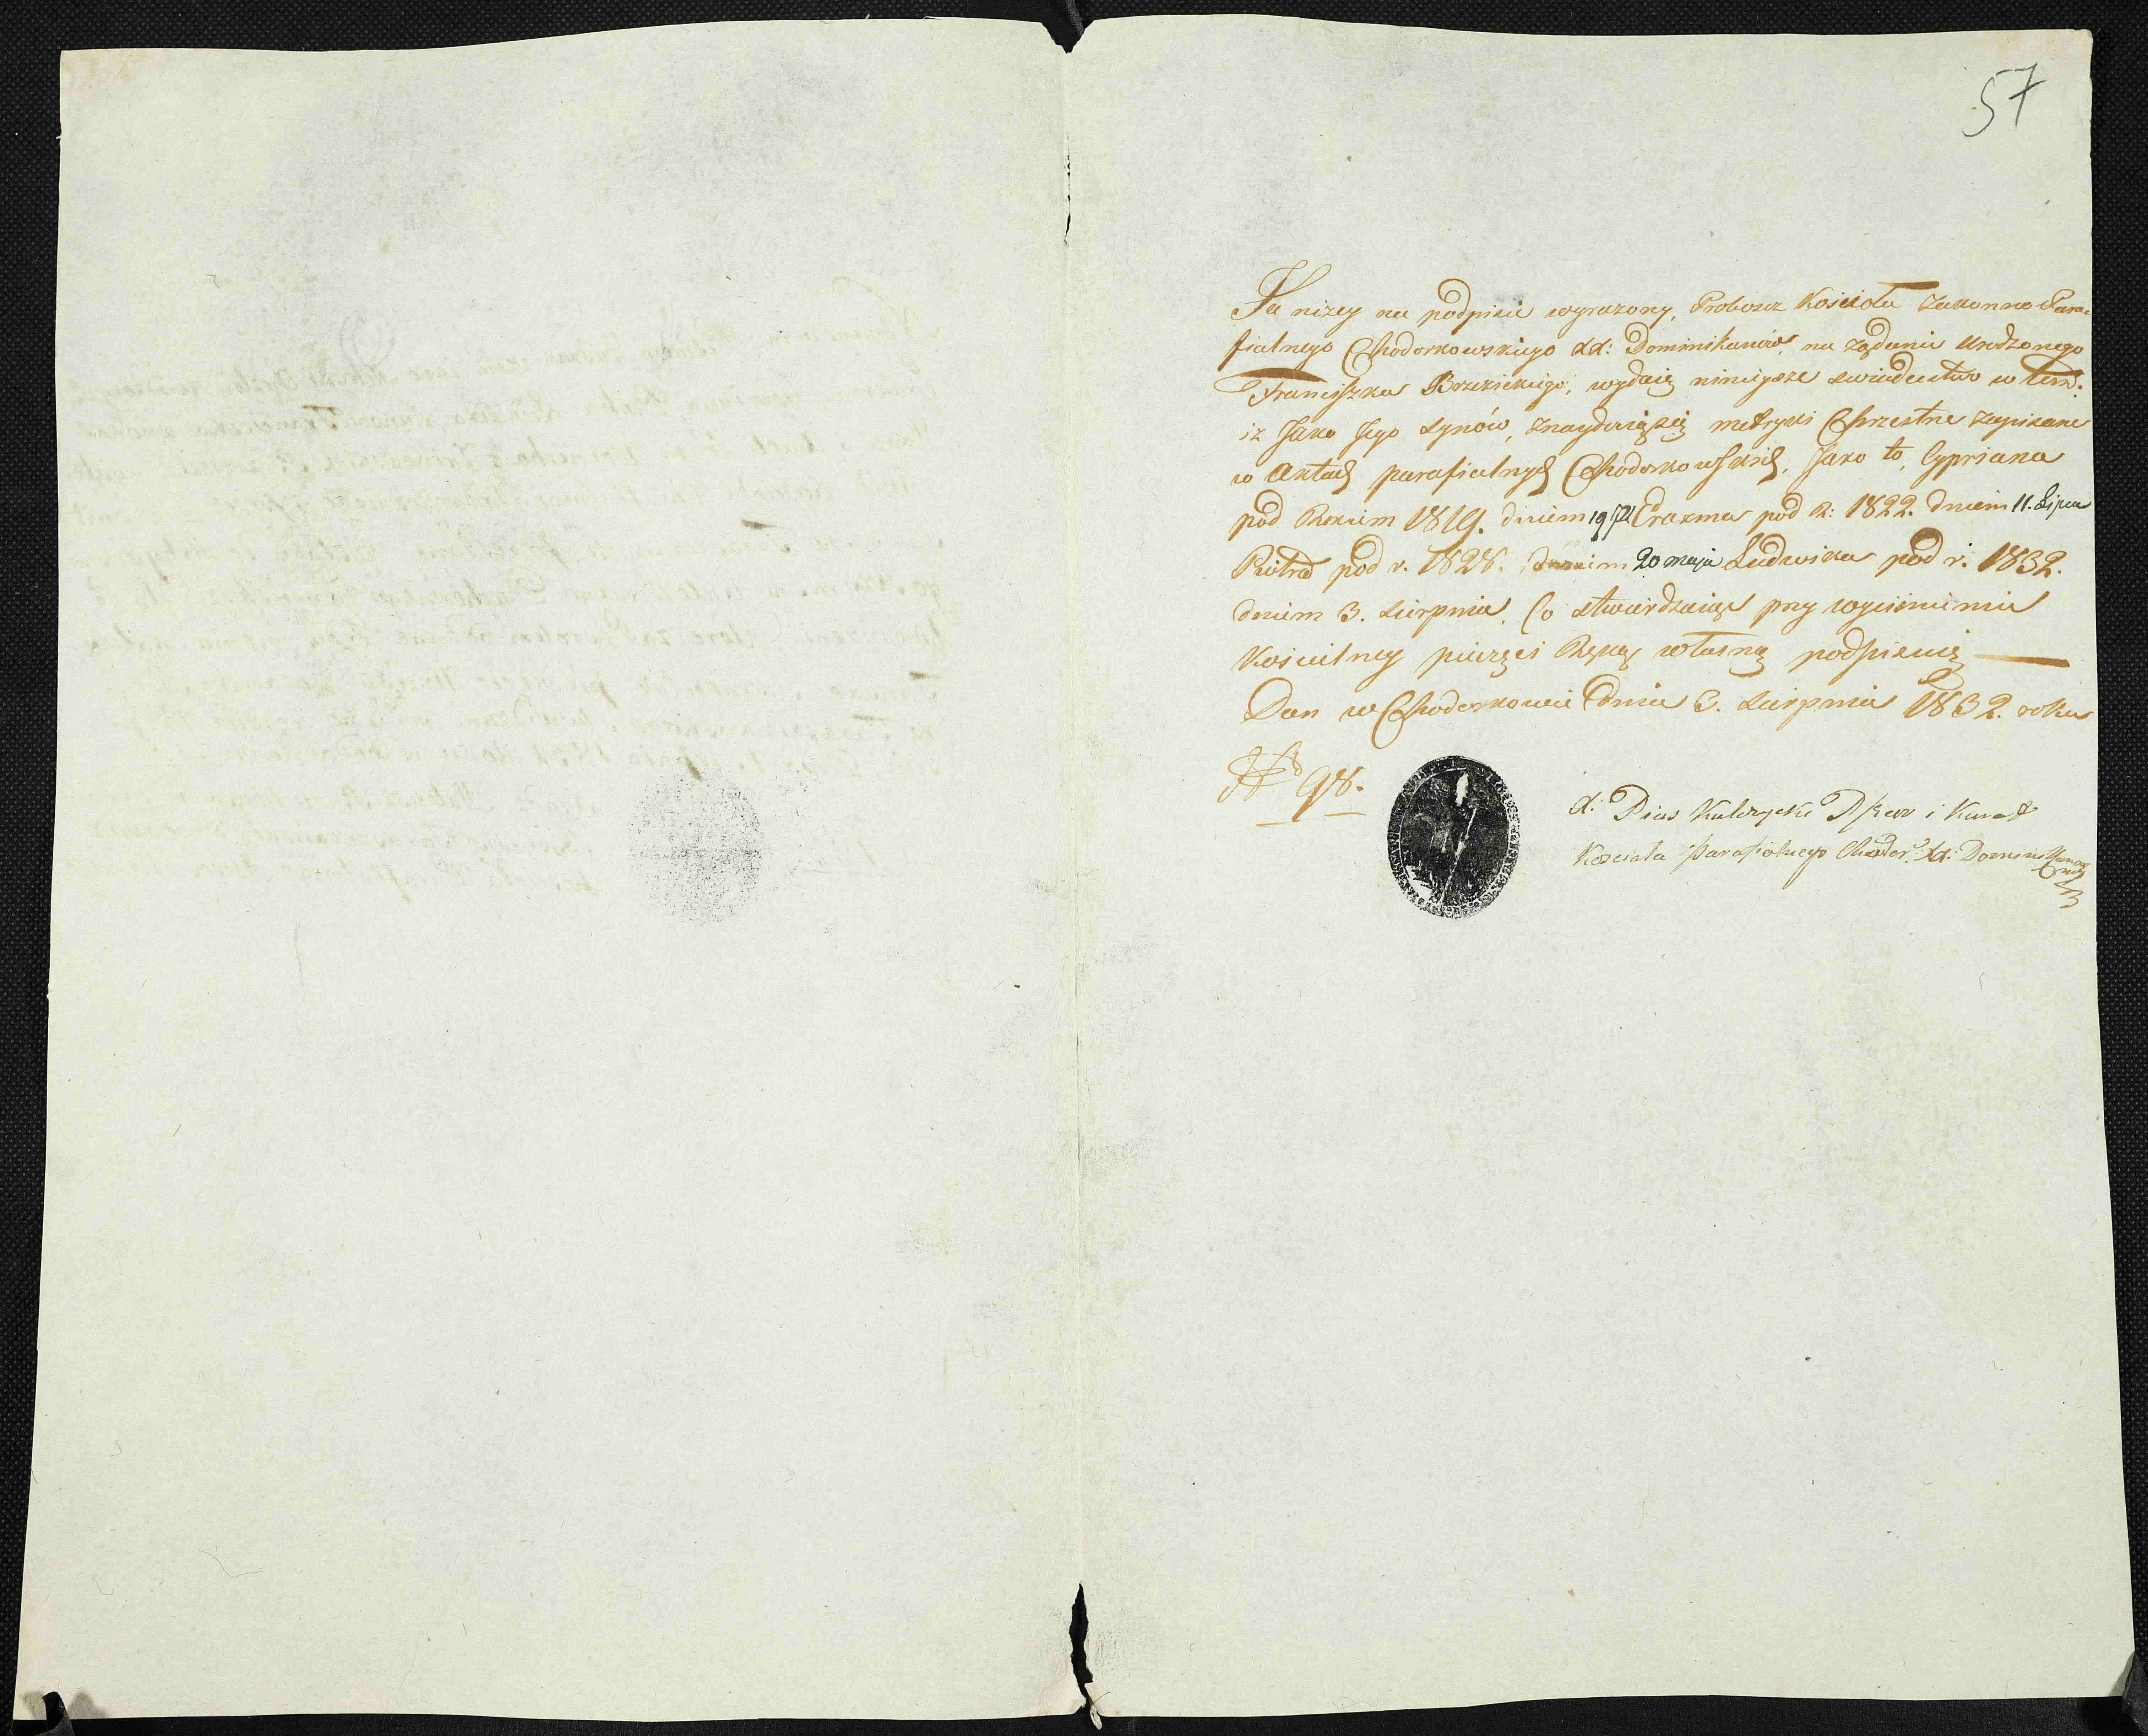 57
Ja niżey na podpisie wyrażony, Proboszcz Kościoła Zakonno Para-
fialnego Chodorkowskiego XX: Dominikanów, na żądanie Urodzonego
Franciszka Brzezickiego, wydaię ninieysze świadectwo w tem:
iż Jako Jego Synów, znayduią się metryki Chrzestne zapisane
w Aktach parafialnych Chodorkowskich, Jako to, Cypriana
pod Rokiem 1819. dniem 19 Erazma pod R: 1822. dniem 11. Lipca
Piotra pod r. 1828. dniem 20 maja Ludwika pod r. 1832.
dniem 3. Sierpnia, Co stwierdzaiąc przy wyciśnieniu
Kościelney pieczęci Ręką własną podpisuię
Dan w Chodorkowie dnia 3. Sierpnia 1832. roku
N 98.
X: Pius Kulczycki i Kurat
Kościoła Parafialnego Chodor: XX: Dominikanow